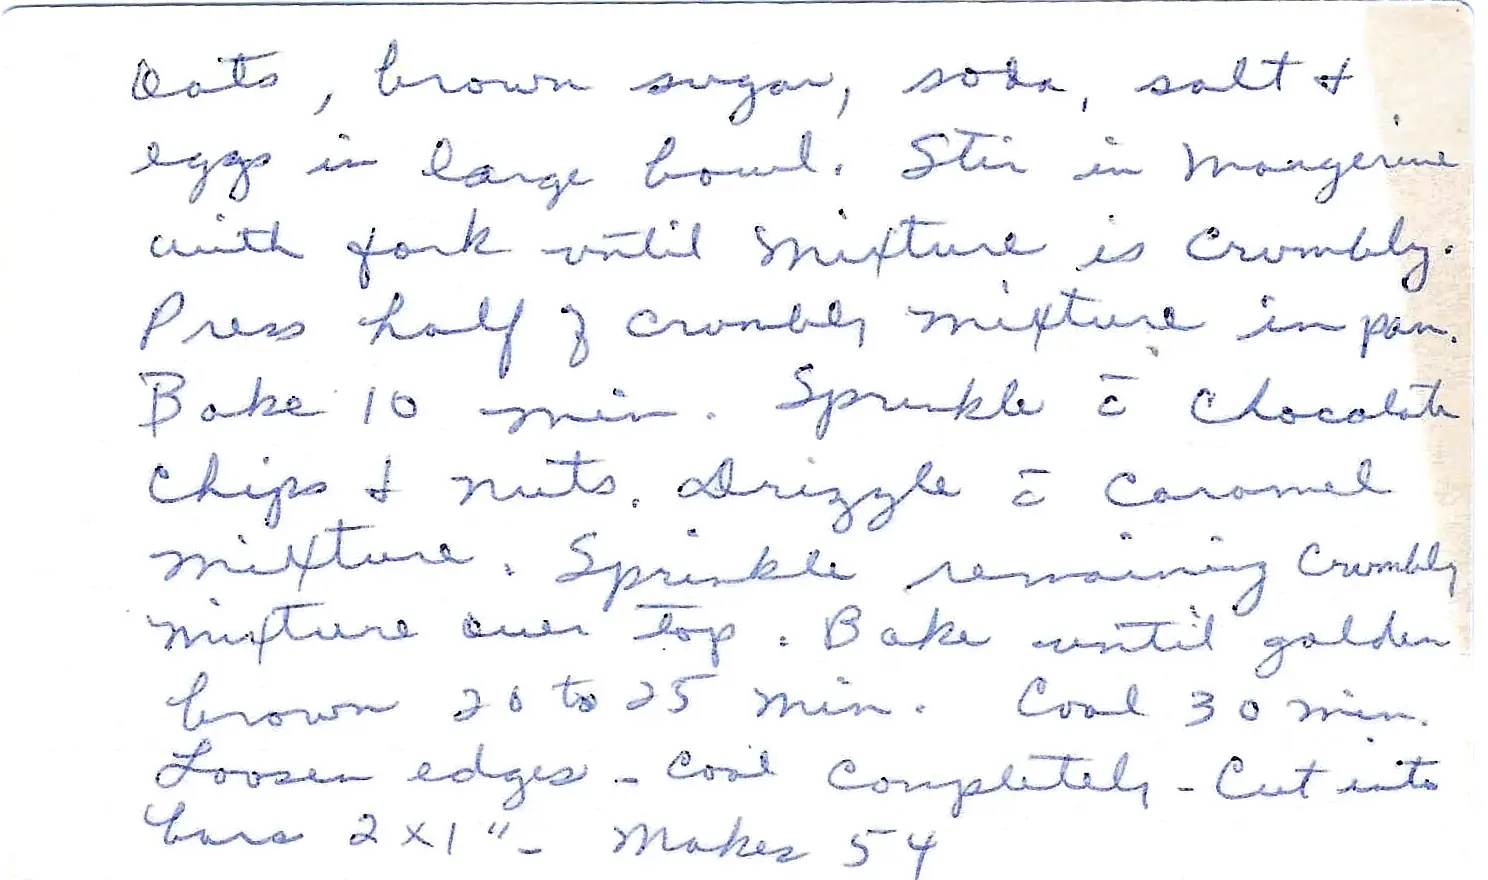 Oats, brown sugar, soda, salt &
eggs in large bowl. Stir in Margerine
with fork until mixture is crumbly.
Press half of crumbly mixture in pan.
Bake 10 min. Sprinkle c̄ chocolate
chips & nuts. Drizzle c̄ caramel
mixture. Sprinkle remaining crumbly
mixture over top. Bake until golden
brown 20 to 25 min. Cool 30 min.
Loosen edges - cool completely - Cut into
bars 2 x 1" - Makes 54